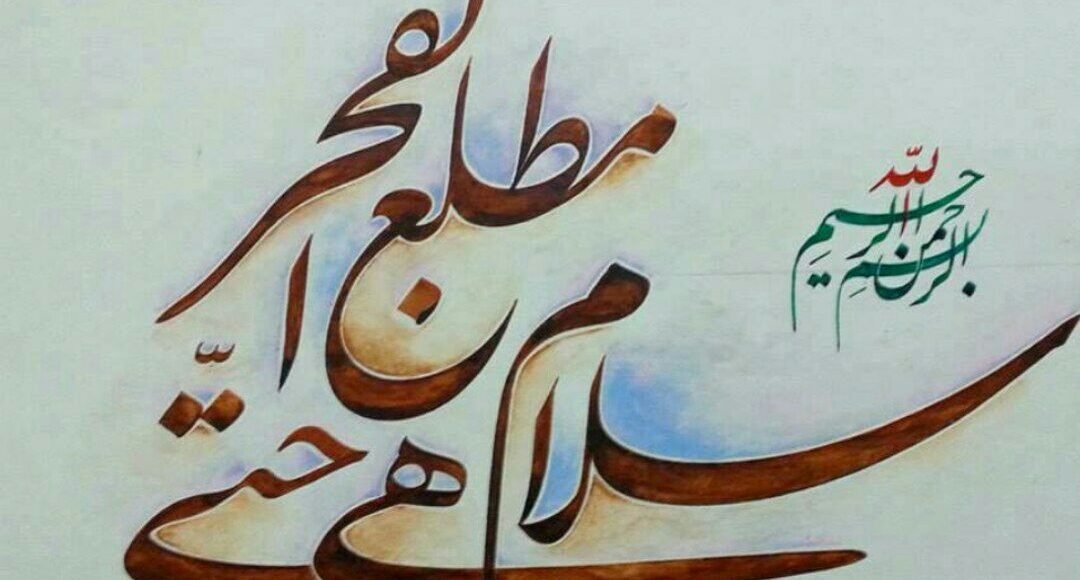 بسم الله الرحمن الرحیم
سلام هی حتّی
مطلع الفجر